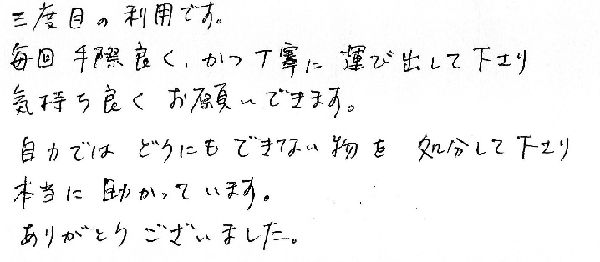 三度目の利用です。
毎回手際良く、かつ丁寧に運び出して下さり
気持ち良くお願いできます。
自力ではどうにもできない物を処分して下さり
本当に助かっています。
ありがとうございました。